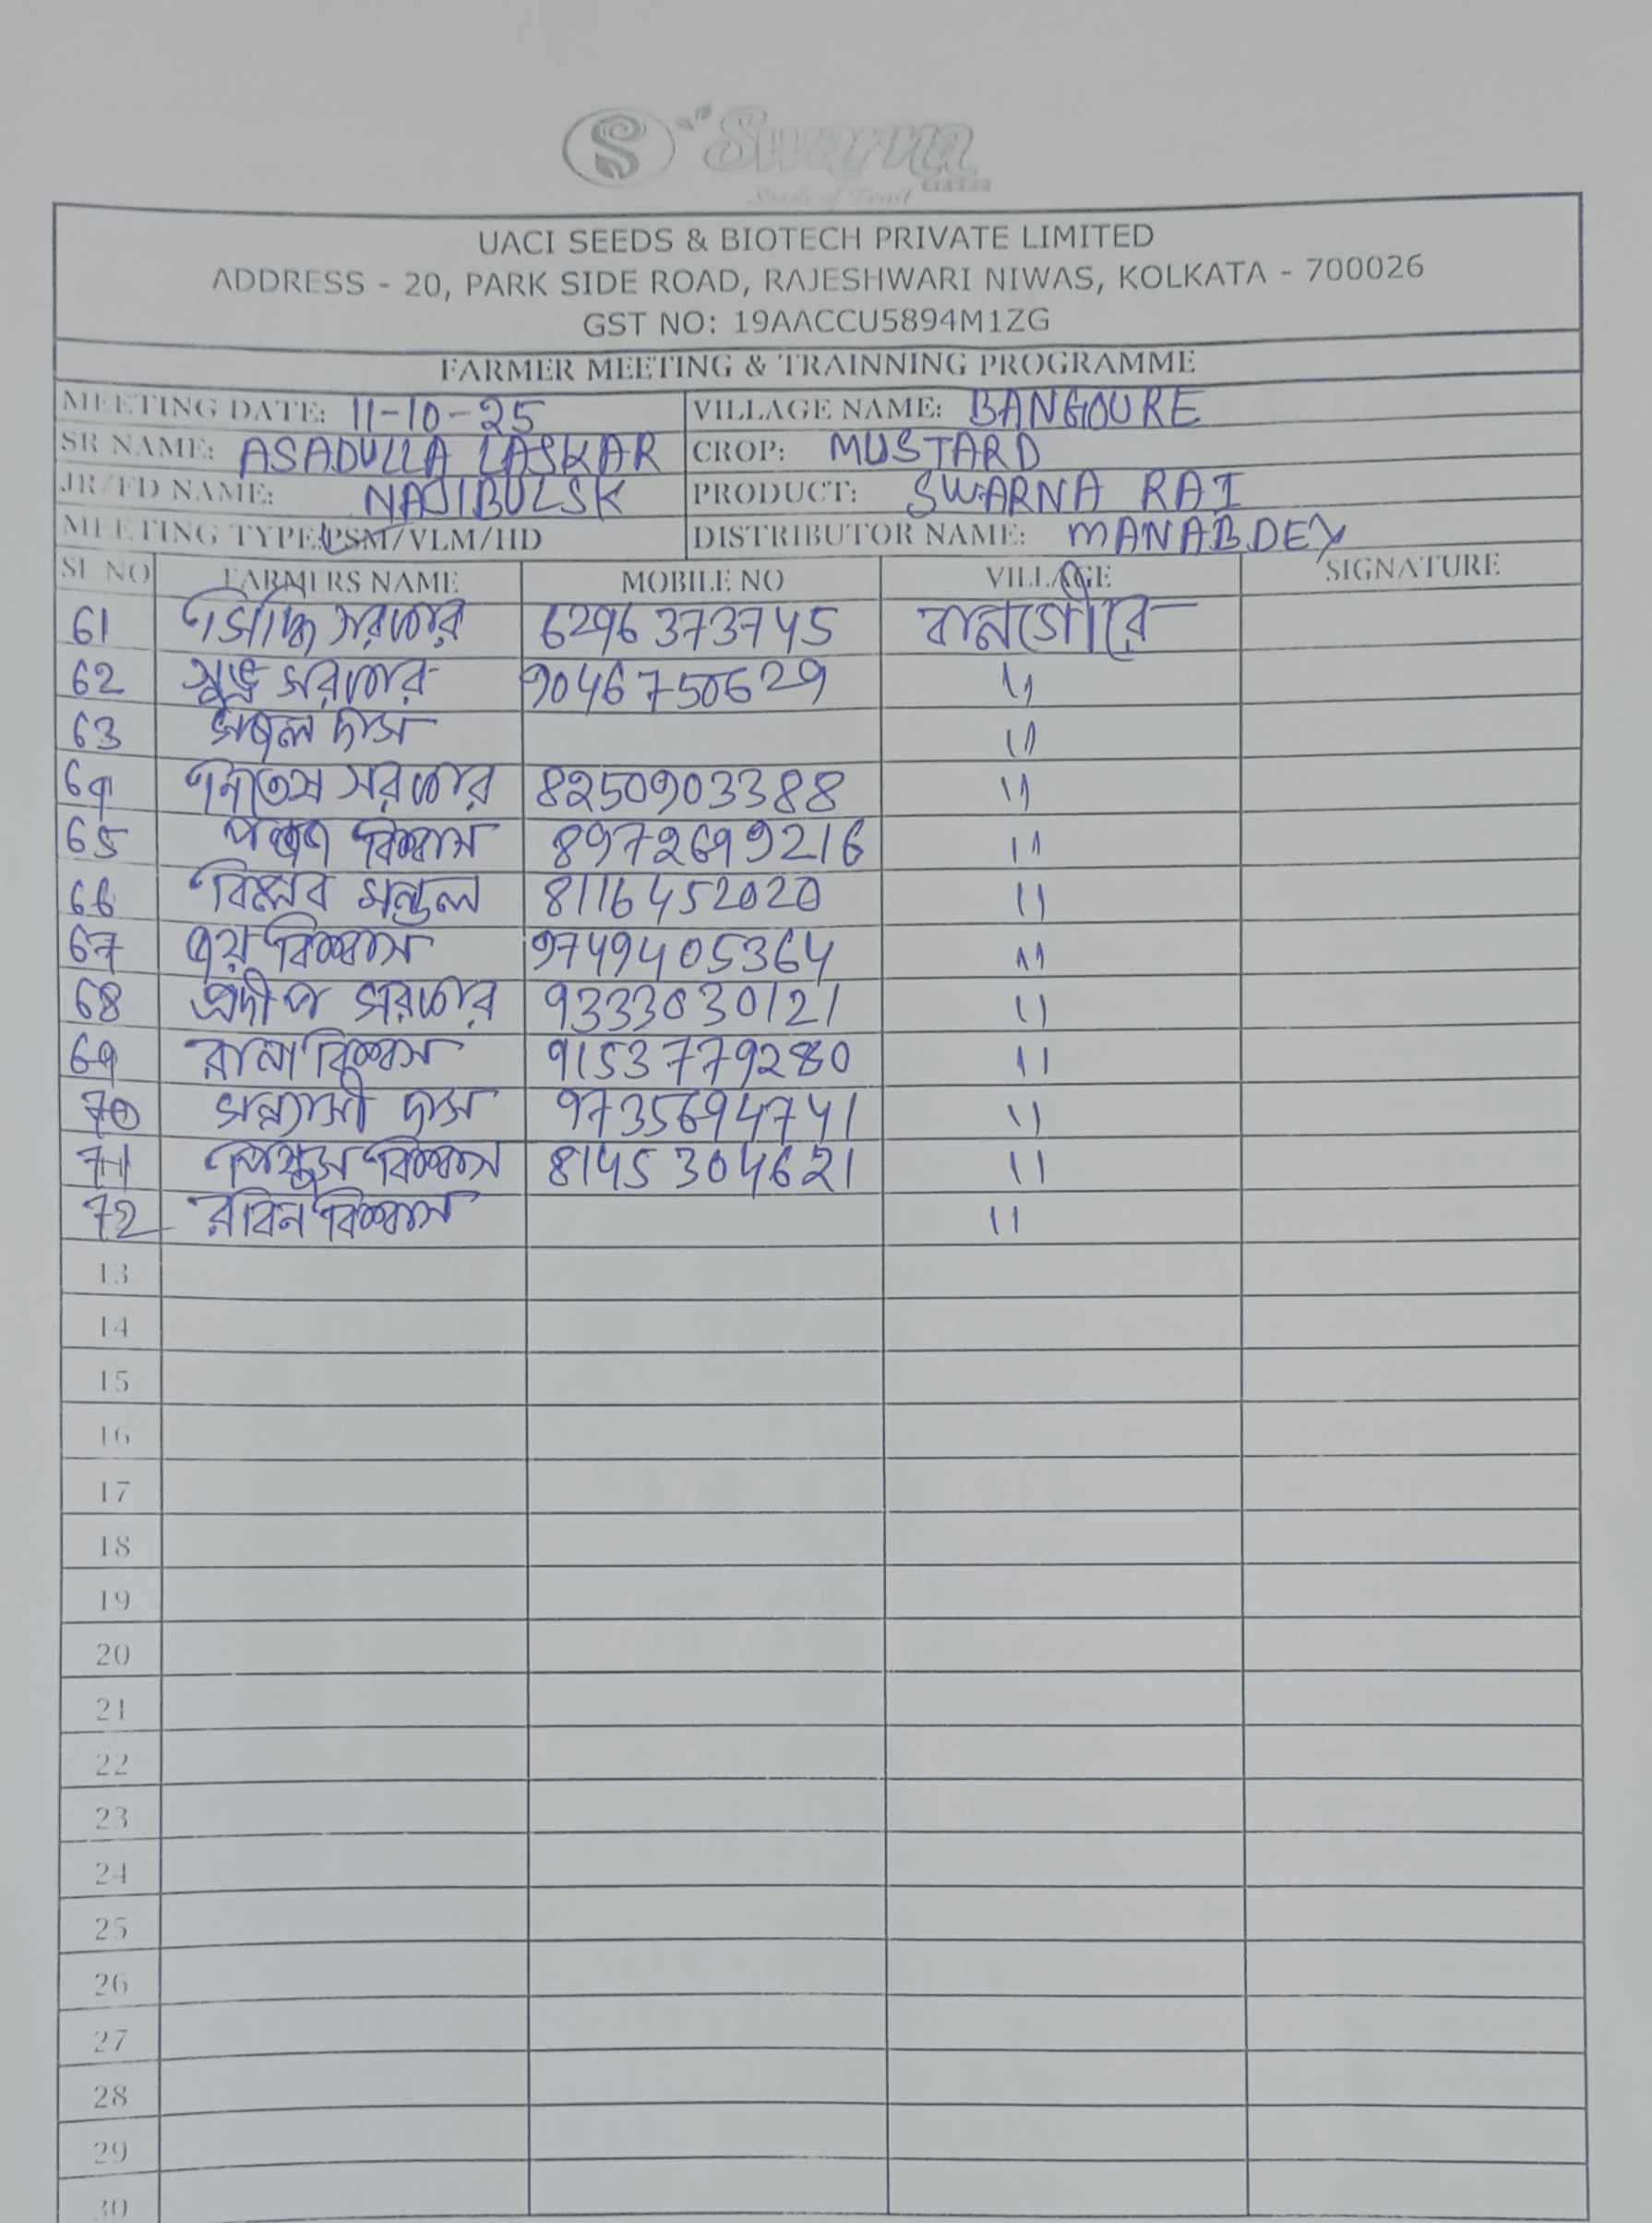 Swarna
Seeds of Trust
UACI SEEDS & BIOTECH PRIVATE LIMITED
ADDRESS - 20, PARK SIDE ROAD, RAJESHWARI NIWAS, KOLKATA - 700026
GST NO: 19AACCU5894M1ZG
FARMER MEETING & TRAINNING PROGRAMME
MEETING DATE: 11-10-25 VILLAGE NAME: BANGOURE
SR NAME: ASADULLA LASKAR CROP: MUSTARD
JR/FD NAME: NAJIBUL SK PRODUCT: SWARNA RAI
MEETING TYPE: PSM/VLM/HD DISTRIBUTOR NAME: MANAB DEY
SL NO FARMERS NAME MOBILE NO VILLAGE SIGNATURE
61 সরকার 6296373745 বানগৌরে
62 শুভ্র সরকার 9046750629 11
63 দাস 11
64 সরকার 8250903388 11
65 বিশ্বাস 8972699216 11
66 বিপ্লব মন্ডল 8116452020 11
67 জয় বিশ্বাস 9749405364 11
68 প্রদীপ সরকার 9333030121 11
69 রানা বিশ্বাস 9153779280 11
70 সন্ন্যাসী দাস 9735694741 11
71 বিশ্বাস 8145304621 11
72 রবিন বিশ্বাস 11
13
14
15
16
17
18
19
20
21
22
23
24
25
26
27
28
29
30